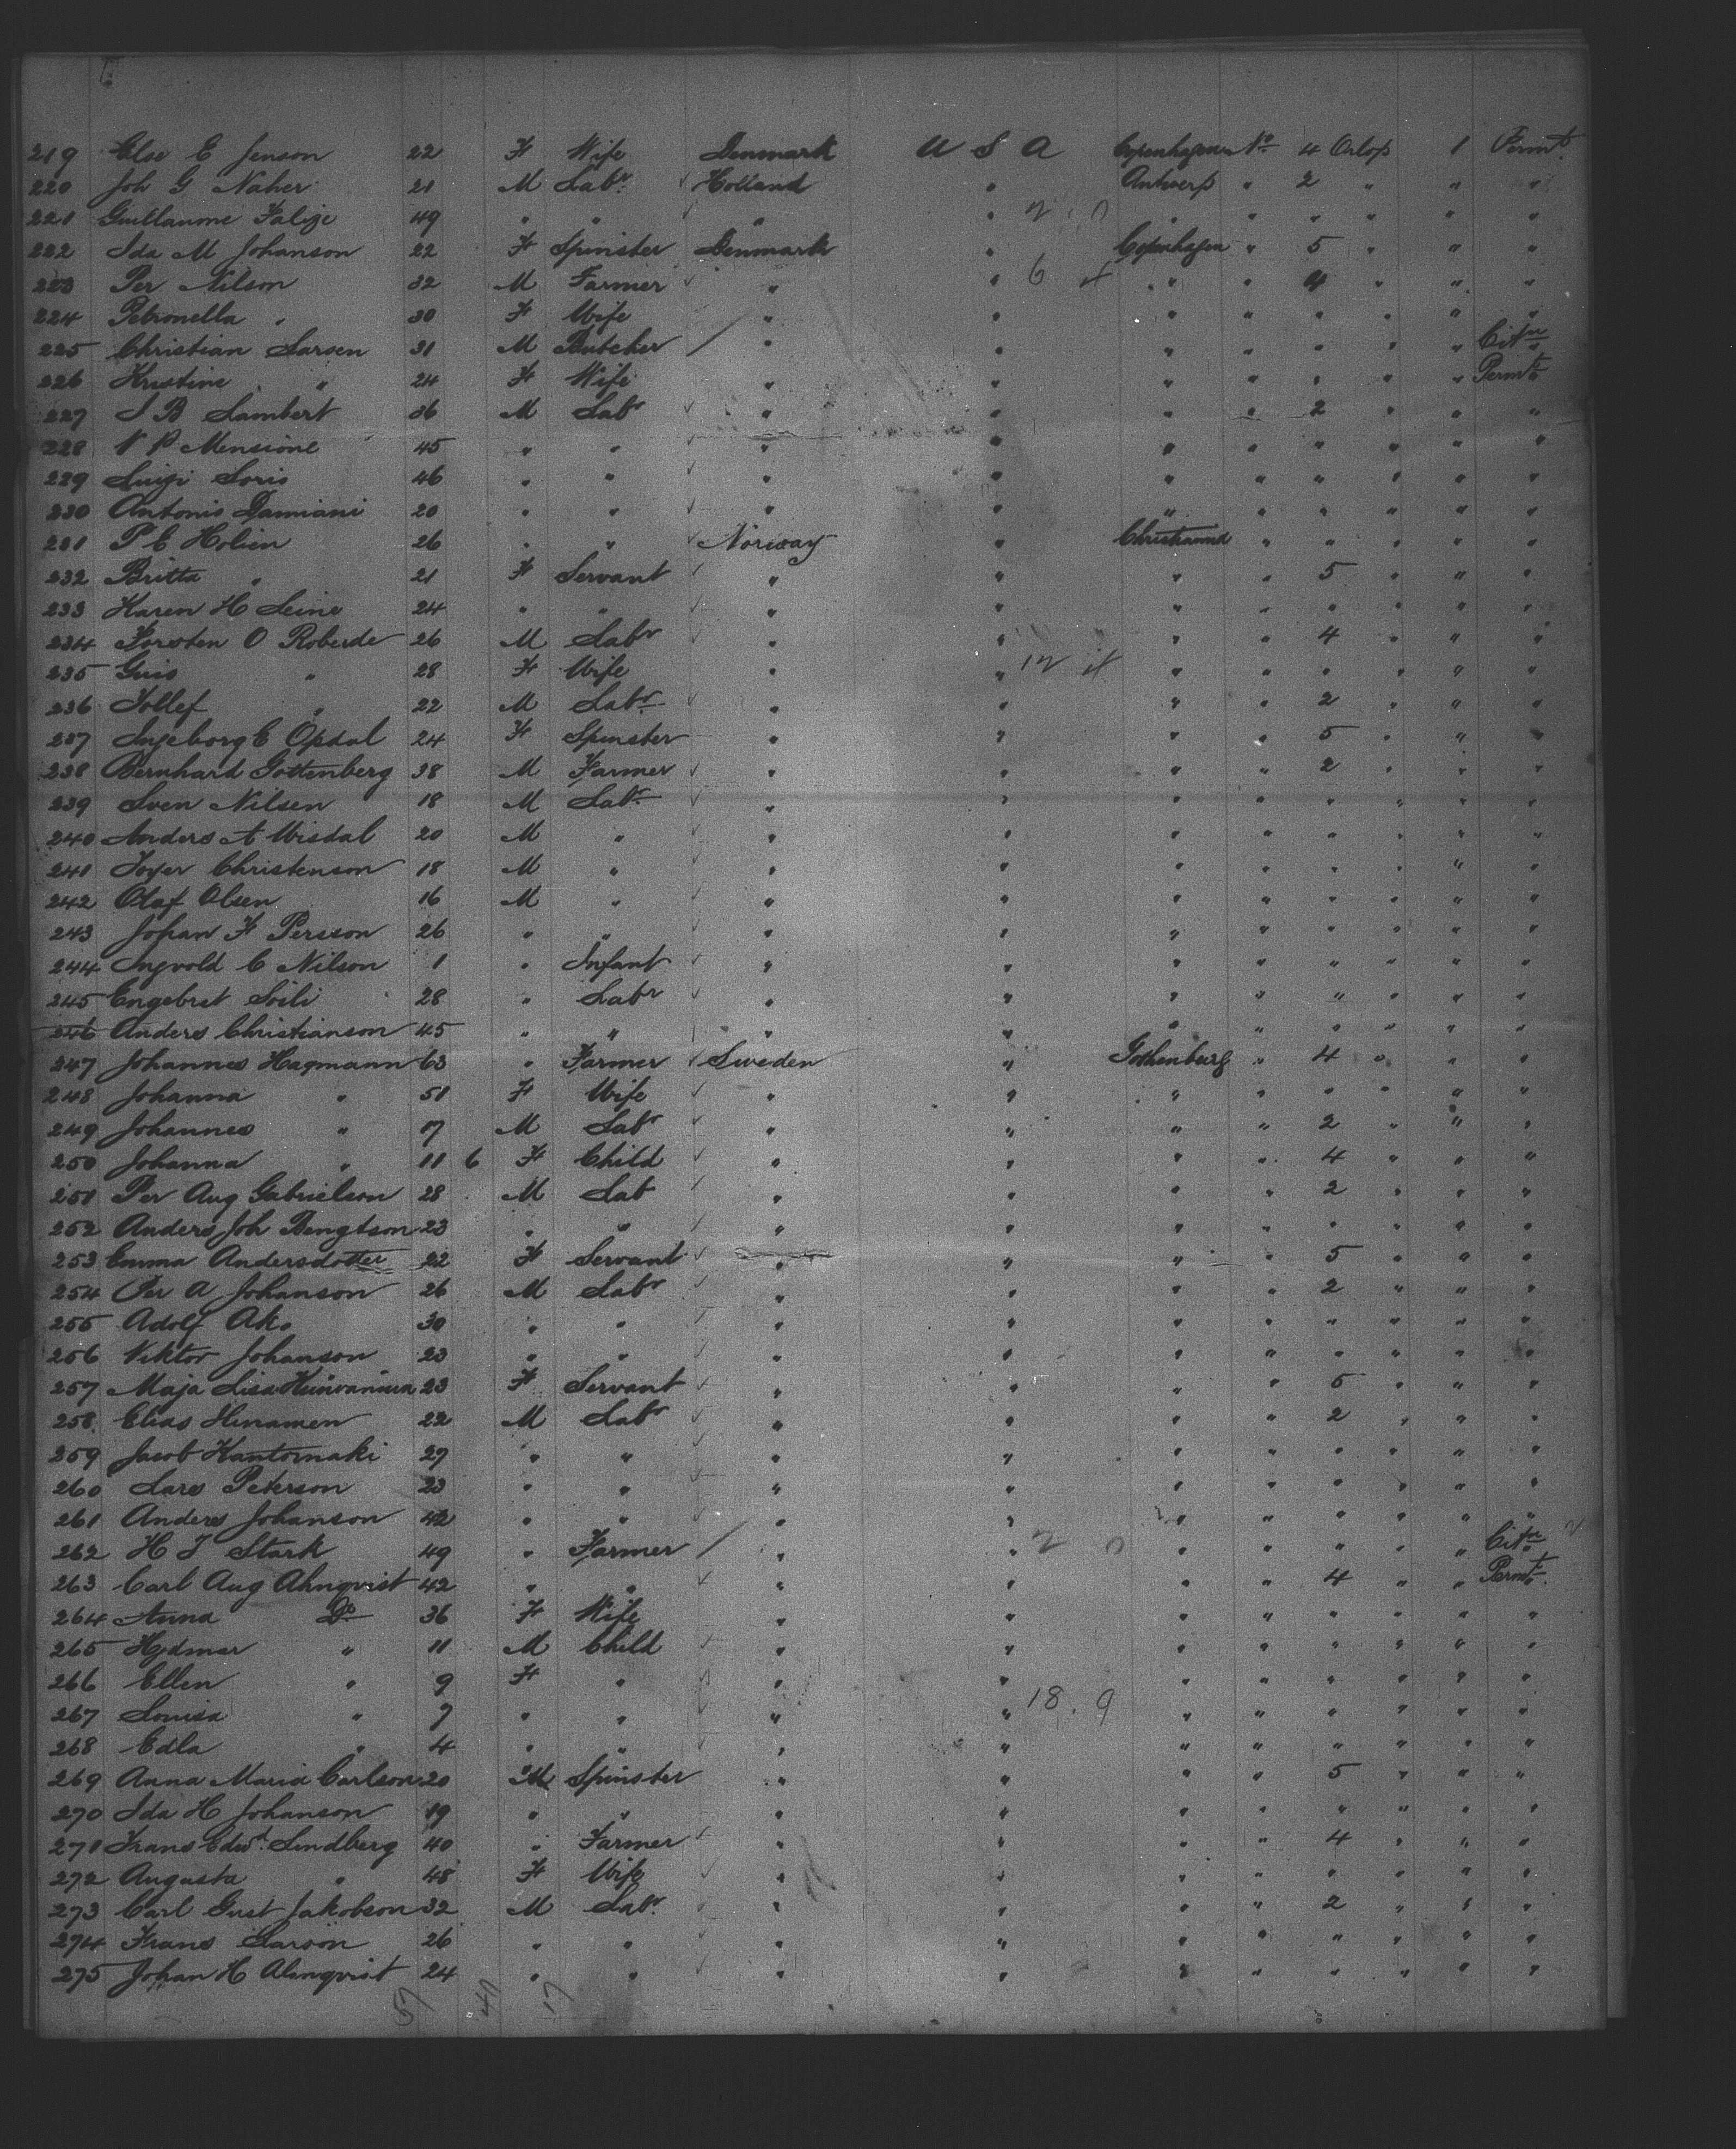 219 Else E Jenson 22 F Wife Denmark U S A Copenhagen No 4 Orlop 1 Permt
220 Joh G Naher 21 M Labr Holland " Antwerp " 2 " " "
221 Guillaume Falize 49 " " " " 2 . 0 " " " " " "
222 Ida M Johanson 22 F Spinster Denmark " Copenhagen " 5 " " "
223 Per Nilson 32 M Farmer " " 6 " " 4 " " "
224 Petronella " 30 F Wife " " " " " " " "
225 Christian Larsen 31 M Butcher / " " " " " " " Citzn
226 Kristine " 24 F Wife " " " " " " " Permt
227 S B Lambert 36 M Labr " " " " 2 " " "
228 N P Mensione 45 " " " " " " " " " "
229 Luigi Loris 46 " " " " " " " " " "
230 Antonio Damiani 20 " " " " " " " " " "
231 P C Holien 26 " " Norway " Christiansd " " " " "
232 Britta " 21 F Servant " " " " 5 " " "
233 Karen H Leine 24 " " " " " " " " " "
234 Torsten O Roberde 26 M Labr " " " " 4 " " "
235 Guro " 28 F Wife " " 12 " " " " " "
236 Tollef " 22 M Labr " " " " 2 " " "
237 Ingeborg C Opdal 24 F Spinster " " " " 5 " " "
238 Bernhard Gottenberg 38 M Farmer " " " " 2 " " "
239 Sven Nilsen 18 M Labr " " " " " " " "
240 Anders A Misdal 20 M " " " " " " " " "
241 Toger Christenson 18 M " " " " " " " " "
242 Olaf Olsen 16 M " " " " " " " " "
243 Johan F Persson 26 " " " " " " " " " "
244 Ingvold C Nilson 1 " Infant " " " " " " " "
245 Engebret Soili 28 " Labr " " " " " " " "
246 Anders Christianson 45 " " " " " " " " " "
247 Johannes Hagmann 63 " Farmer Sweden " Gothenburg " 4 " " "
248 Johanna " 51 F Wife " " " " " " " "
249 Johannes " 17 M Labr " " " " 2 " " "
250 Johanna " 11 6 F Child " " " " 4 " " "
251 Per Aug Gabrielson 28 M Lab " " " " 2 " " "
252 Anders Joh Bengtson 23 " " " " " " " " " "
253 Emma Andersdotter 22 F Servant " " " " 5 " " "
254 Per A Johanson 26 M Labr " " " " 2 " " "
255 Adolf Ako 30 " " " " " " " " " "
256 Viktor Johanson 23 " " " " " " " " " "
257 Maja Lisa 23 F Servant " " " " 5 " " "
258 Elias Hinamen 22 M Labr " " " " 2 " " "
259 Jacob Kantomaki 27 " " " " " " " " " "
260 Lars Peterson 23 " " " " " " " " " "
261 Anders Johanson 42 " " " " " " " " " "
262 H J Stark 49 " Farmer / " " 2 0 " " " " " Citzn
263 Carl Aug Ahnqvist 42 " " " " " " 4 " " Permt
264 Anna Do 36 F Wife " " " " " " " "
265 Hjdmar " 11 M Child " " " " " " " "
266 Ellen " 9 F " " " " " " " " "
267 Louisa " 7 " " " " 18 . 9 " " " " " "
268 Edla " 4 " " " " " " " " " "
269 Anna Maria Carlson 20 M Spinster " " " " 5 " " "
270 Ida H Johanson 19 " " " " " " " " " "
271 Frans Edwd Lindberg 40 " Farmer " " " " 4 " " "
272 Augusta " 48 F Wife " " " " " " " "
273 Carl Gust Jakobson 32 M Labr " " " " 2 " " "
274 Frans Larson 26 " " " " " " " " " "
275 Johan H Almqvist 24 " " " " " " " " " "
57 40 17